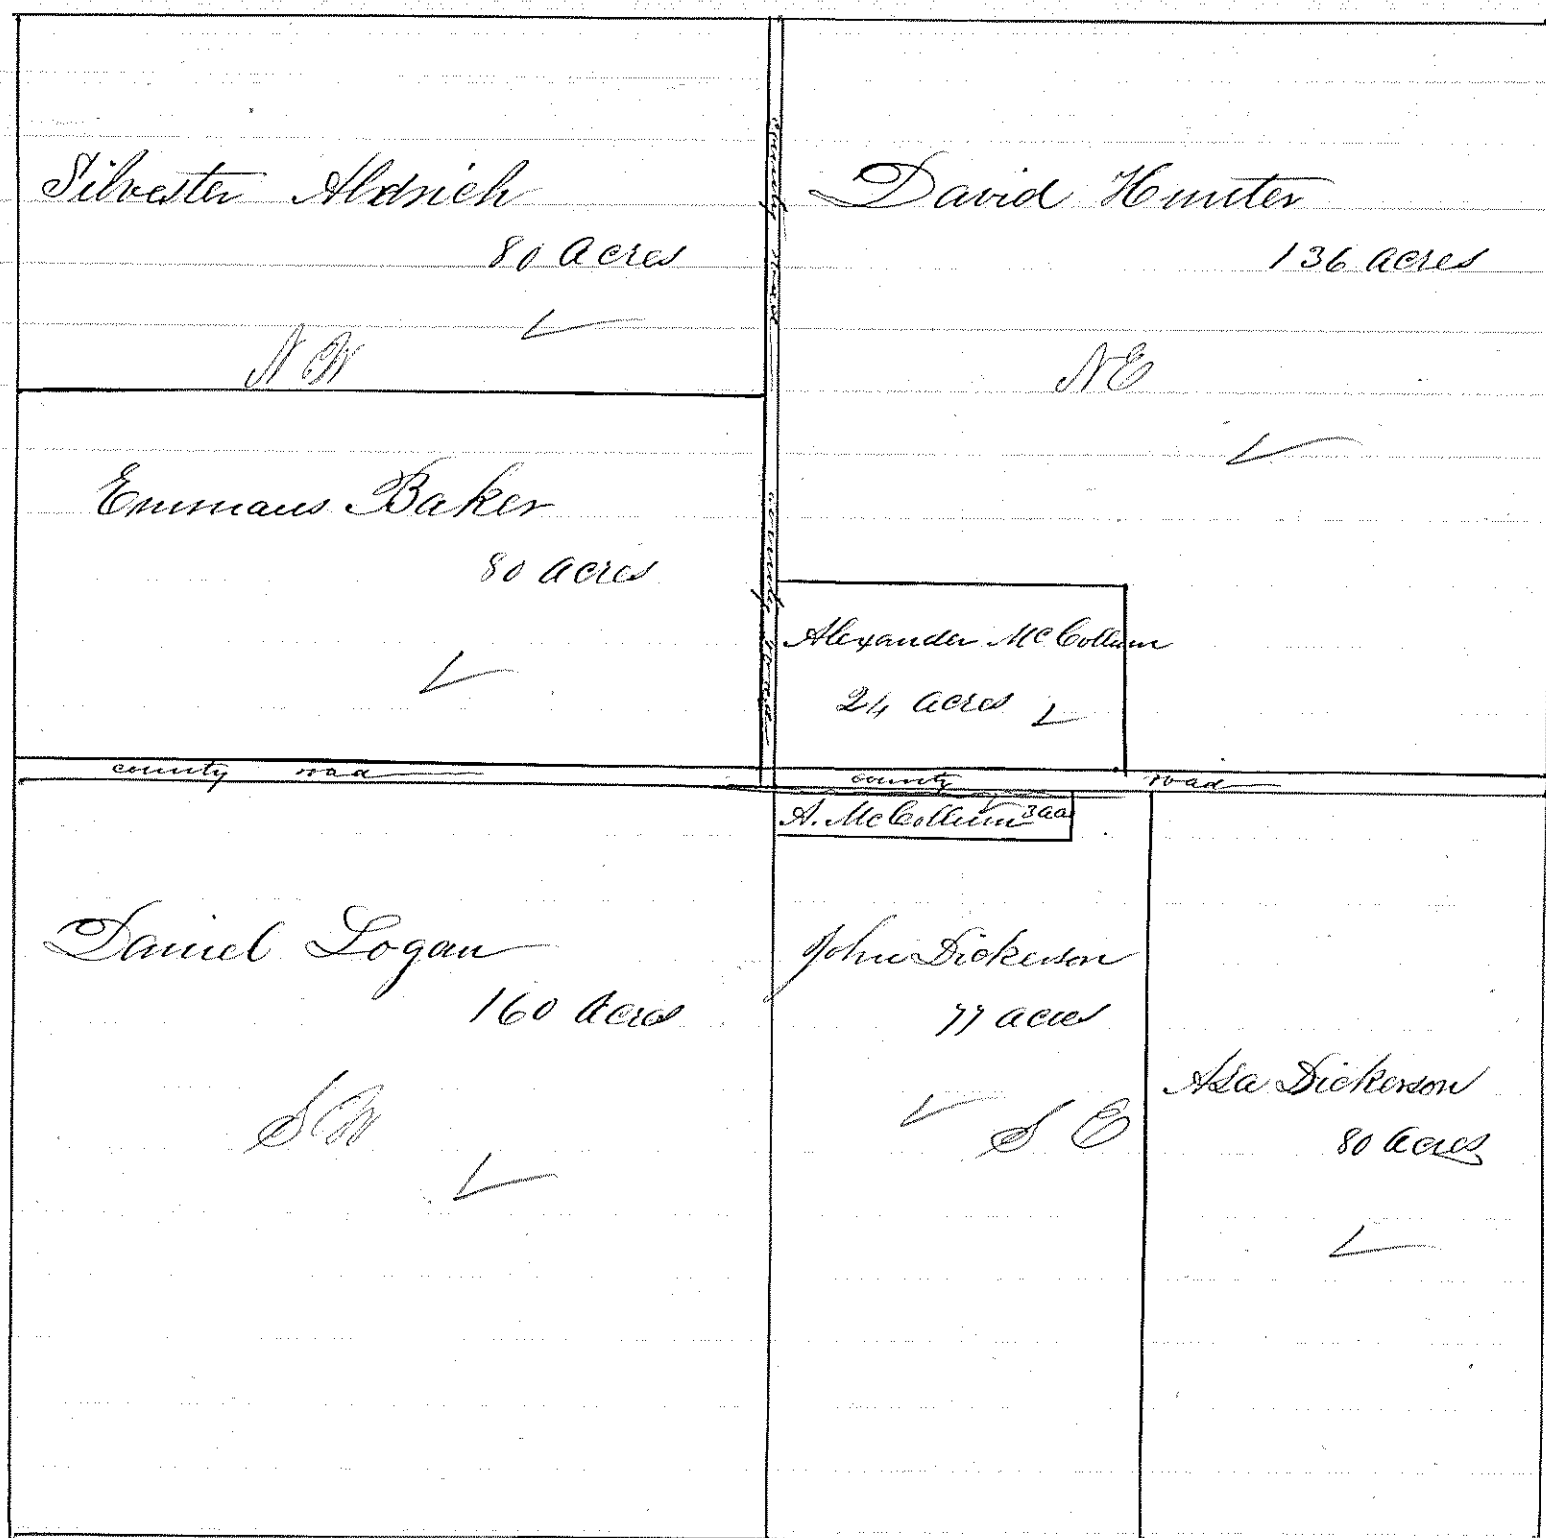 Silvester Aldrich
80 acres
N W
county road
David Hunter
136 acres
N E
Emmaus Baker
80 acres
county road
Alexander McCollum
24 acres
county road
county road
A. McCollum 3 aa
Daniel Logan
160 acres
S W
John Dickerson
77 acres
S E
Asa Dickerson
80 acres